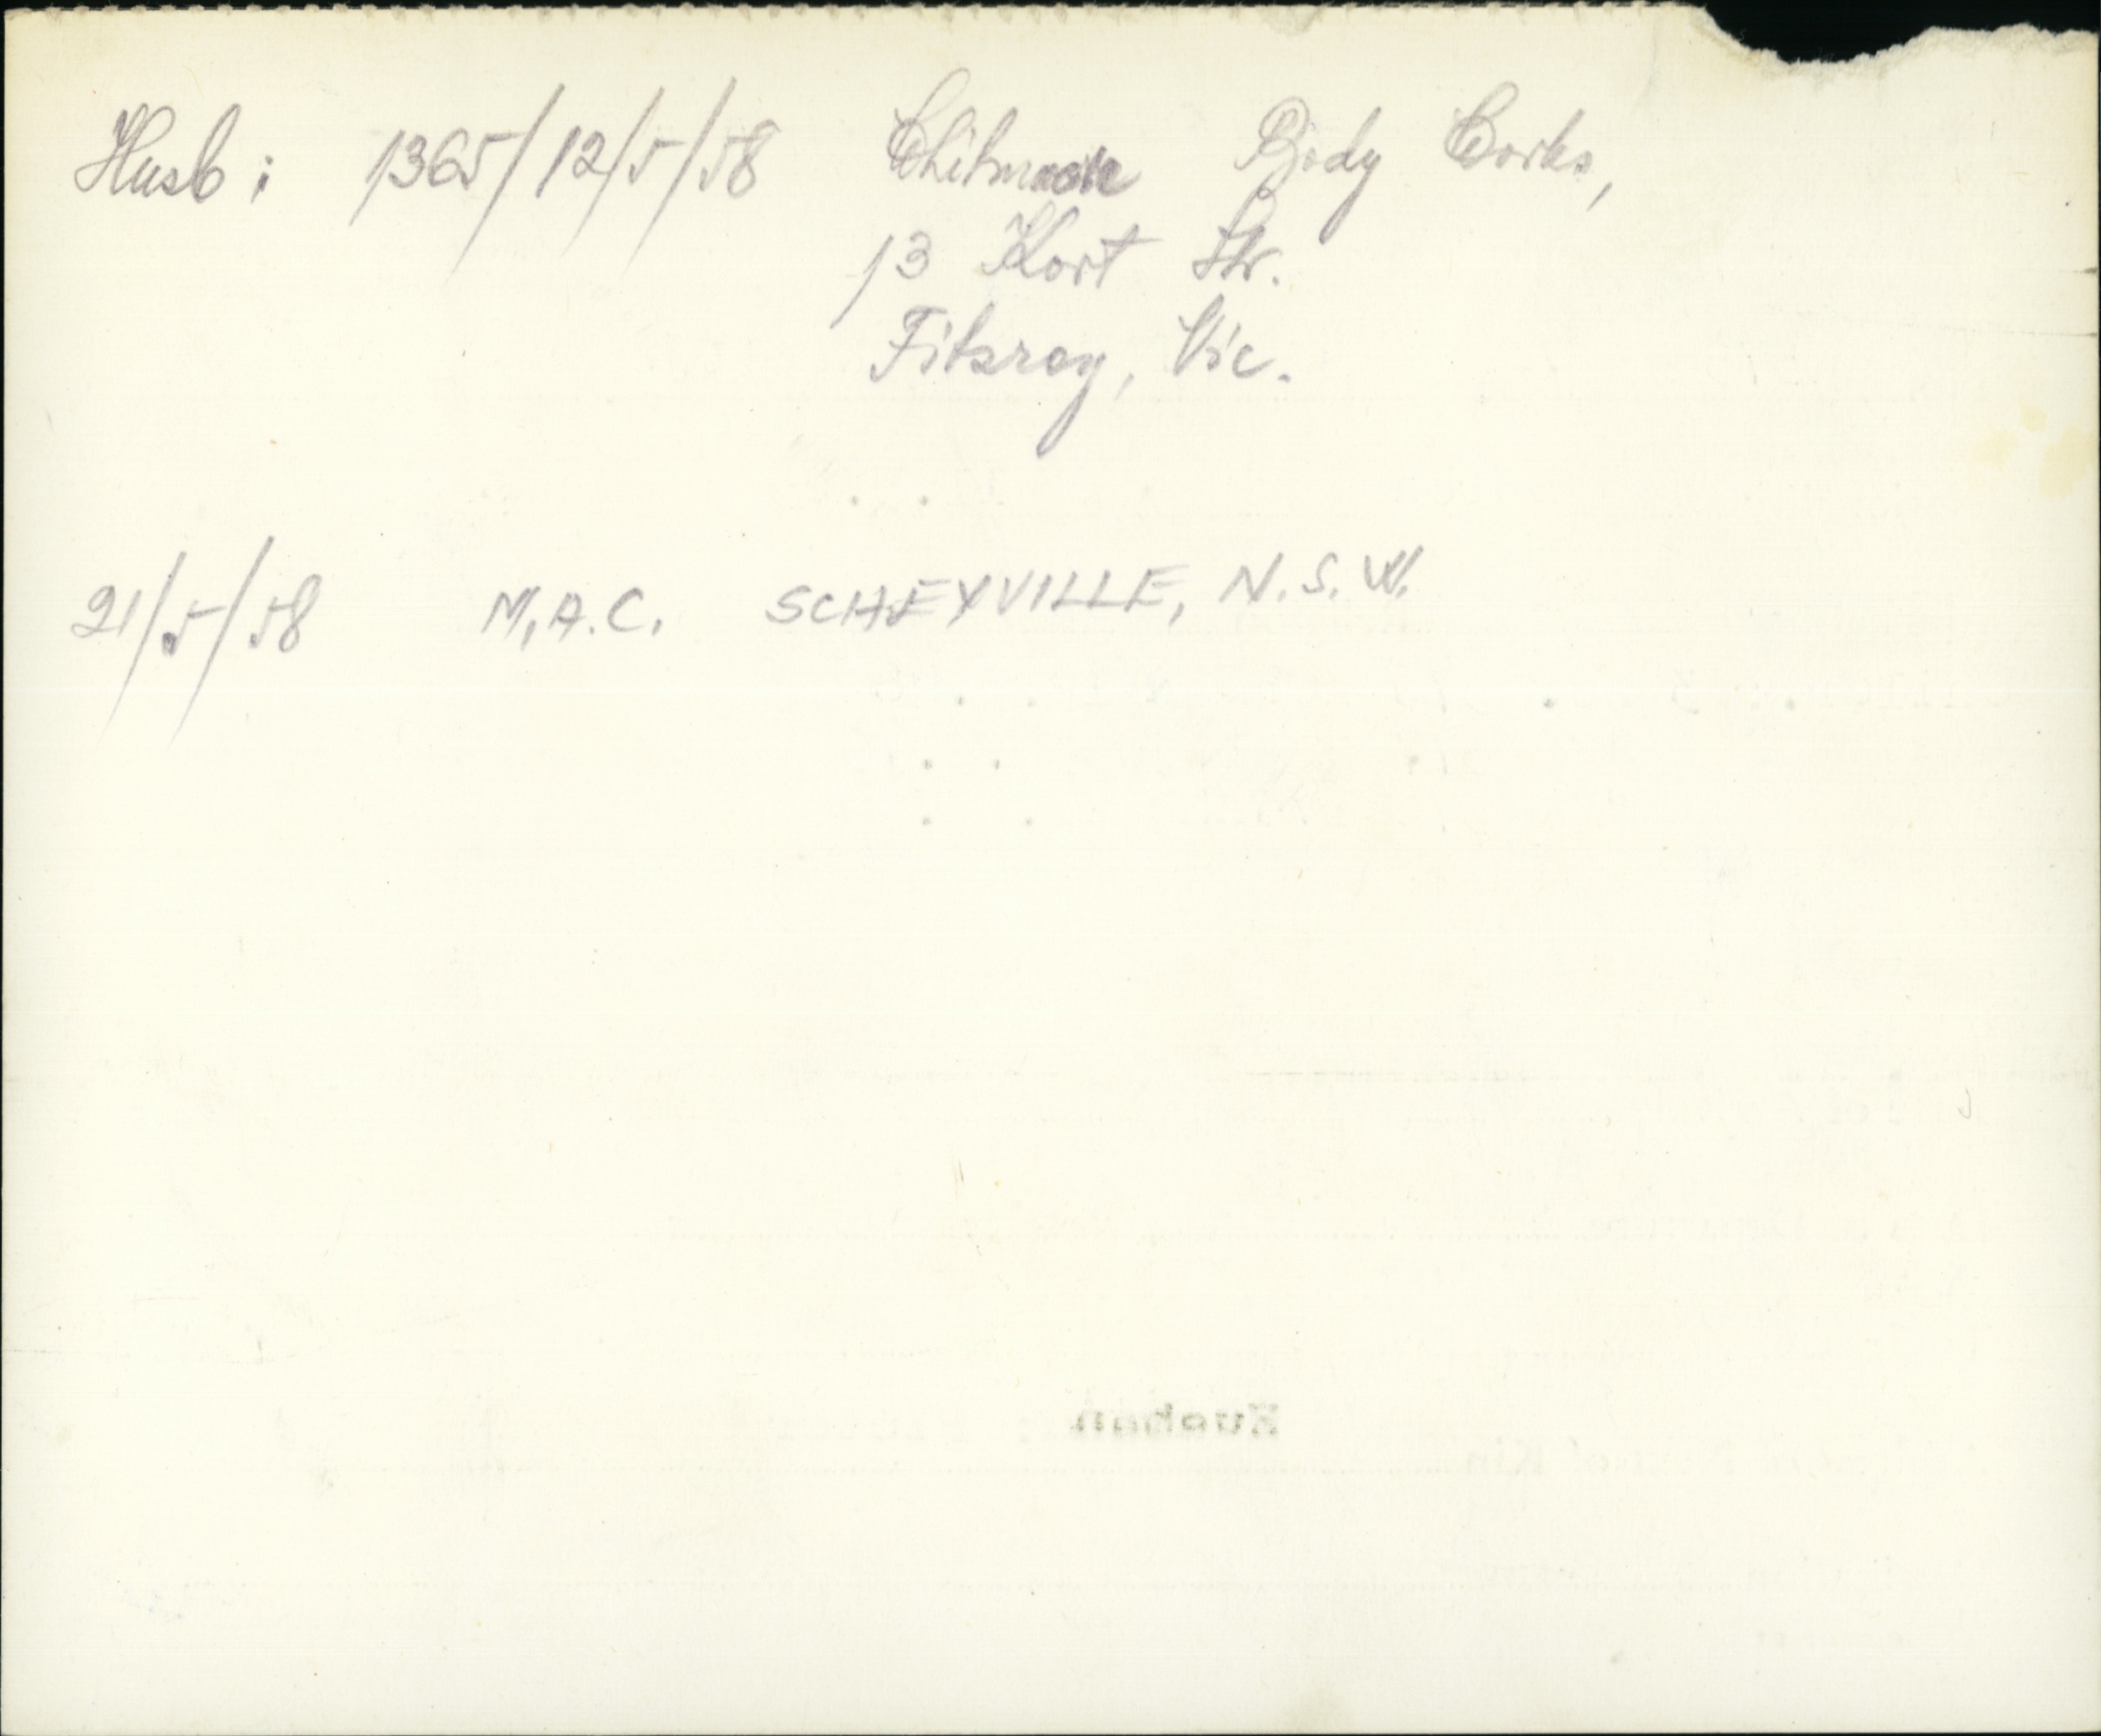 Husb: 1365/12/5/58 Whitmore Body Works,
13 Kort Str.
Fitzroy, Vic.
21/5/58 M.A.C. SCHEYVILLE, N.S.W.